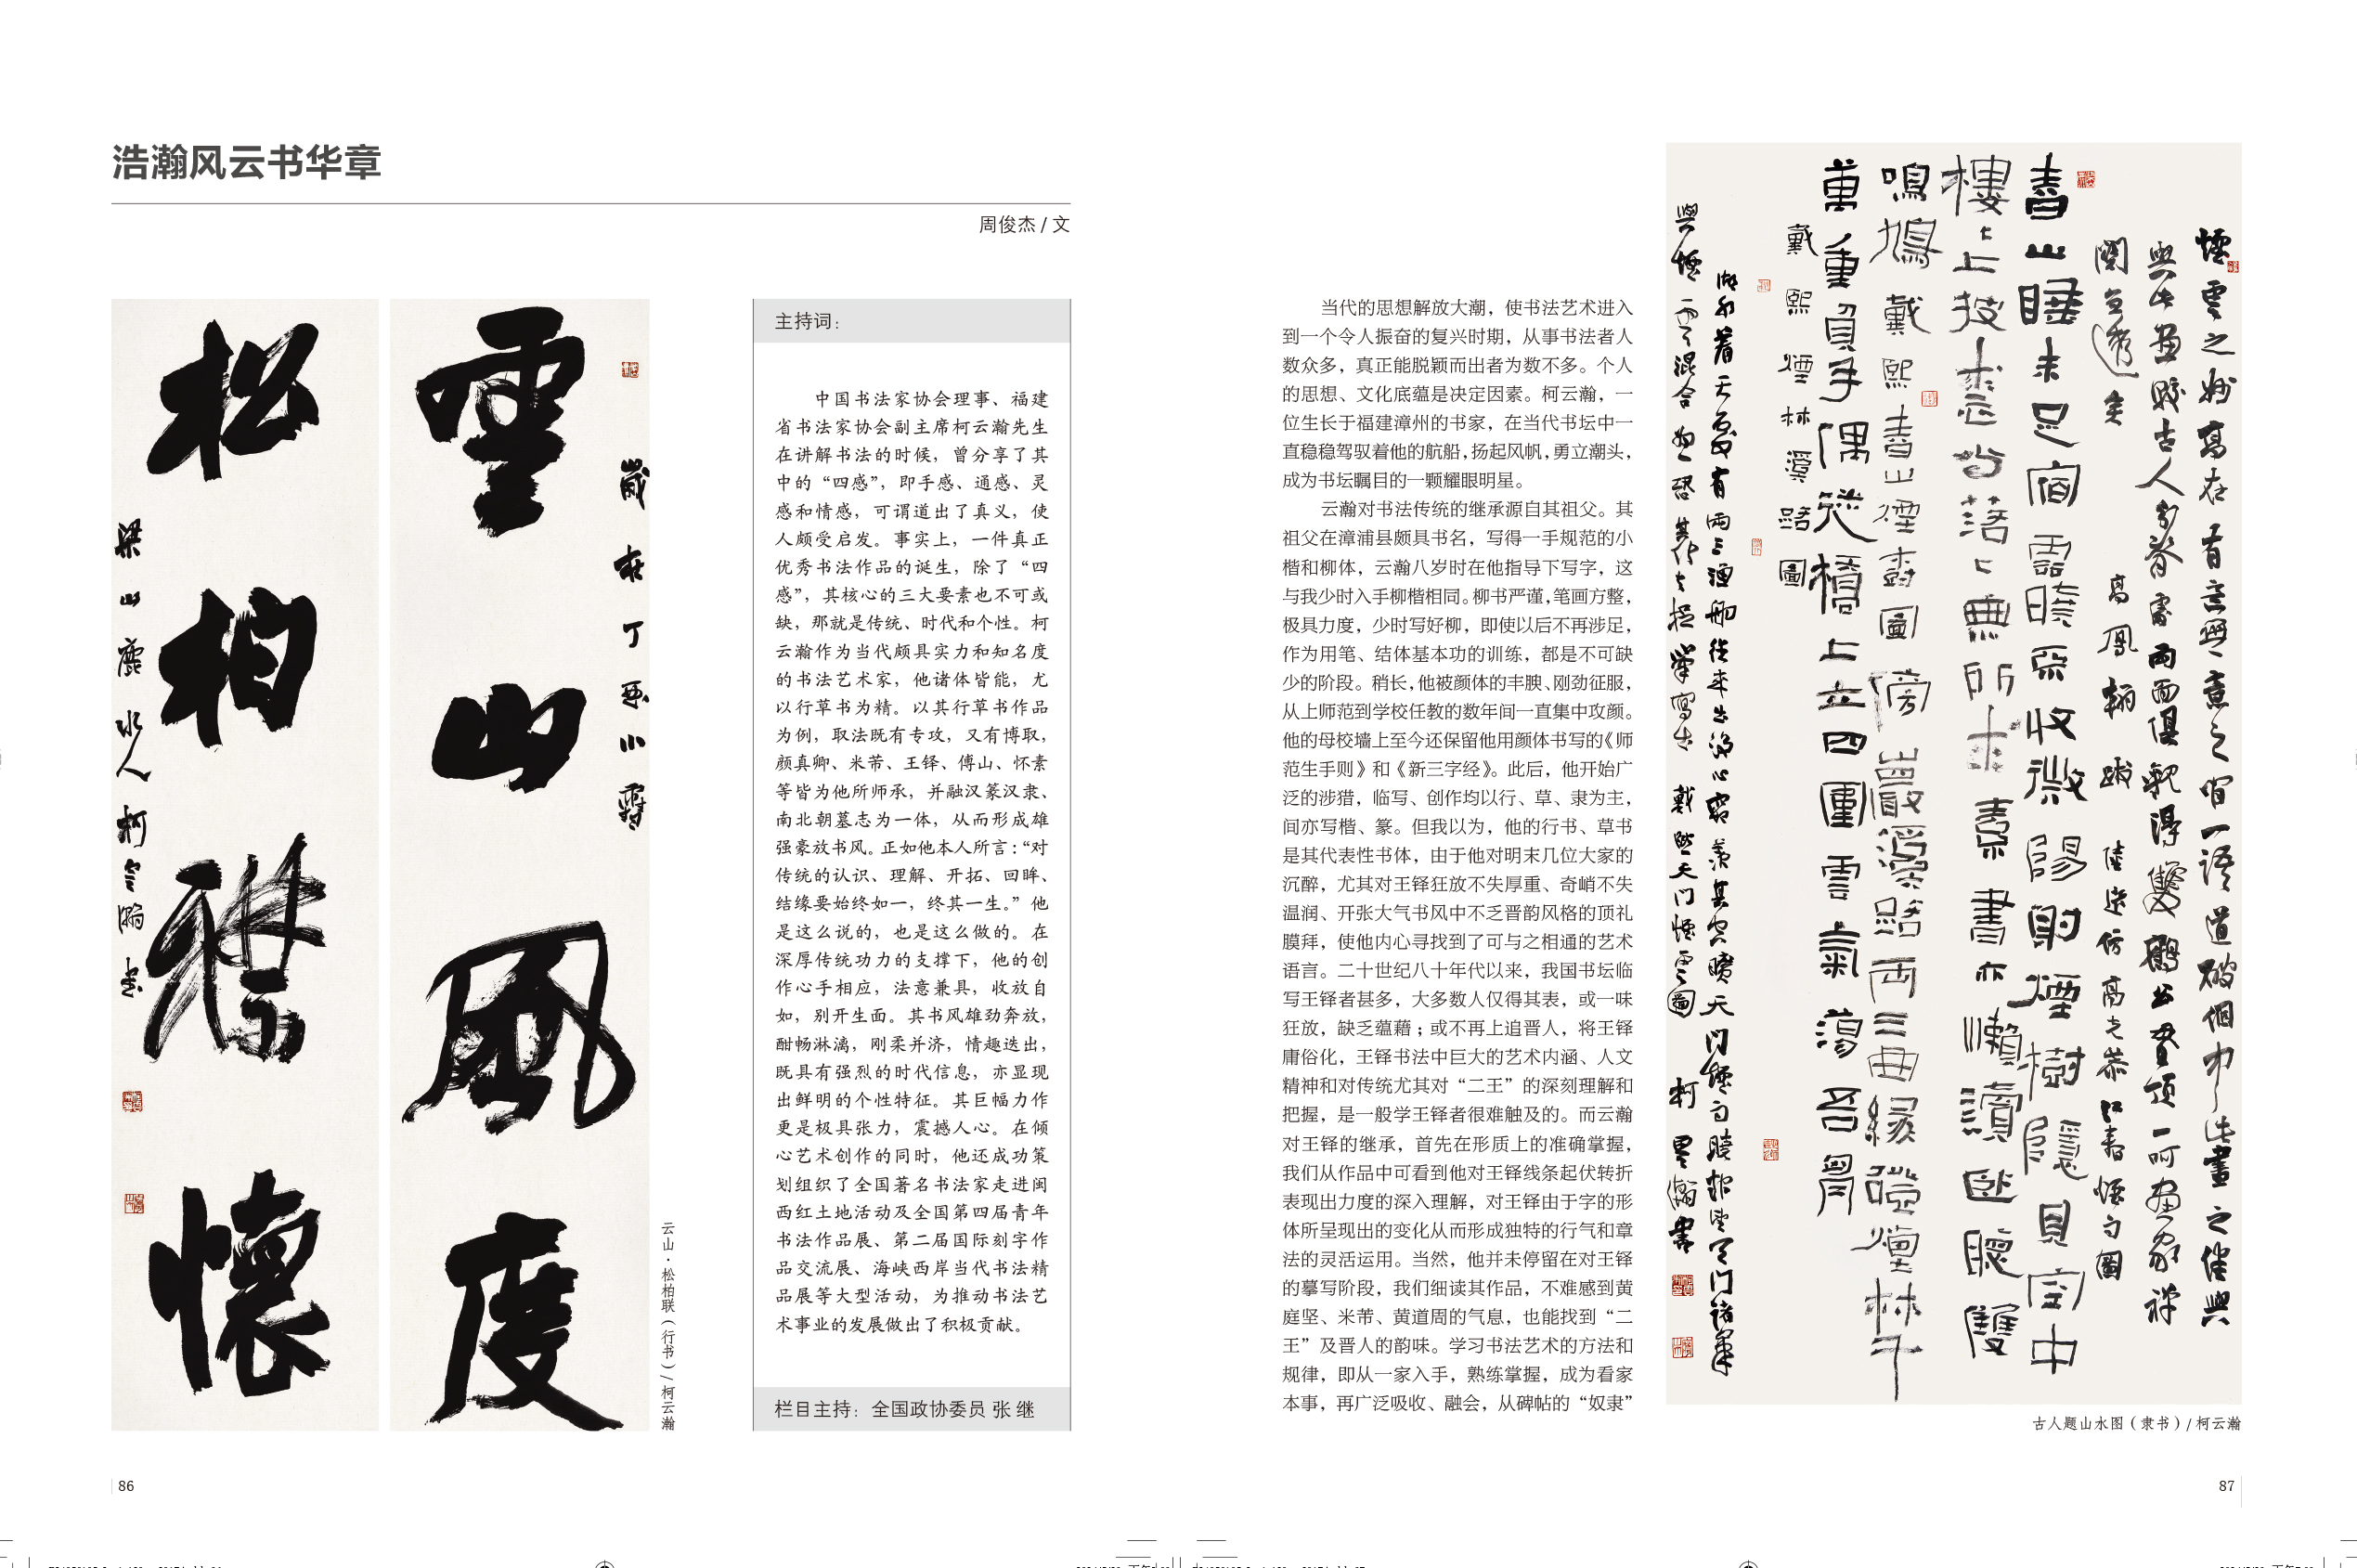 浩瀚风云书华章
周俊杰 / 文
雲山風度
歲在丁酉小霜
松柏襟懷
梁山鹿水人柯云瀚書
云山·松柏联（行书）/ 柯云瀚
主持词：
中国书法家协会理事、福建
省书法家协会副主席柯云瀚先生
在讲解书法的时候，曾分享了其
中的“四感”，即手感、通感、灵
感和情感，可谓道出了真义，使
人颇受启发。事实上，一件真正
优秀书法作品的诞生，除了“四
感”，其核心的三大要素也不可或
缺，那就是传统、时代和个性。柯
云瀚作为当代颇具实力和知名度
的书法艺术家，他诸体皆能，尤
以行草书为精。以其行草书作品
为例，取法既有专攻，又有博取，
颜真卿、米芾、王铎、傅山、怀素
等皆为他所师承，并融汉篆汉隶、
南北朝墓志为一体，从而形成雄
强豪放书风。正如他本人所言：“对
传统的认识、理解、开拓、回眸、
结缘要始终如一，终其一生。”他
是这么说的，也是这么做的。在
深厚传统功力的支撑下，他的创
作心手相应，法意兼具，收放自
如，别开生面。其书风雄劲奔放，
酣畅淋漓，刚柔并济，情趣迭出，
既具有强烈的时代信息，亦显现
出鲜明的个性特征。其巨幅力作
更是极具张力，震撼人心。在倾
心艺术创作的同时，他还成功策
划组织了全国著名书法家走进闽
西红土地活动及全国第四届青年
书法作品展、第二届国际刻字作
品交流展、海峡西岸当代书法精
品展等大型活动，为推动书法艺
术事业的发展做出了积极贡献。
栏目主持：全国政协委员 张 继
86
当代的思想解放大潮，使书法艺术进入
到一个令人振奋的复兴时期，从事书法者人
数众多，真正能脱颖而出者为数不多。个人
的思想、文化底蕴是决定因素。柯云瀚，一
位生长于福建漳州的书家，在当代书坛中一
直稳稳驾驭着他的航船，扬起风帆，勇立潮头，
成为书坛瞩目的一颗耀眼明星。
云瀚对书法传统的继承源自其祖父。其
祖父在漳浦县颇具书名，写得一手规范的小
楷和柳体，云瀚八岁时在他指导下写字，这
与我少时入手柳楷相同。柳书严谨，笔画方整，
极具力度，少时写好柳，即使以后不再涉足，
作为用笔、结体基本功的训练，都是不可缺
少的阶段。稍长，他被颜体的丰腴、刚劲征服，
从上师范到学校任教的数年间一直集中攻颜。
他的母校墙上至今还保留他用颜体书写的《师
范生手则》和《新三字经》。此后，他开始广
泛的涉猎，临写、创作均以行、草、隶为主，
间亦写楷、篆。但我以为，他的行书、草书
是其代表性书体，由于他对明末几位大家的
沉醉，尤其对王铎狂放不失厚重、奇峭不失
温润、开张大气书风中不乏晋韵风格的顶礼
膜拜，使他内心寻找到了可与之相通的艺术
语言。二十世纪八十年代以来，我国书坛临
写王铎者甚多，大多数人仅得其表，或一味
狂放，缺乏蕴藉；或不再上追晋人，将王铎
庸俗化，王铎书法中巨大的艺术内涵、人文
精神和对传统尤其对“二王”的深刻理解和
把握，是一般学王铎者很难触及的。而云瀚
对王铎的继承，首先在形质上的准确掌握，
我们从作品中可看到他对王铎线条起伏转折
表现出力度的深入理解，对王铎由于字的形
体所呈现出的变化从而形成独特的行气和章
法的灵活运用。当然，他并未停留在对王铎
的摹写阶段，我们细读其作品，不难感到黄
庭坚、米芾、黄道周的气息，也能找到“二
王”及晋人的韵味。学习书法艺术的方法和
规律，即从一家入手，熟练掌握，成为看家
本事，再广泛吸收、融会，从碑帖的“奴隶”
春山睡未足宿霑曉系收微陽射煙樹隱見空中
樓上技忘皆落無所求素書亦懶讀聽雙
鳴鳩戴熙春山煙樹圖傍巖溪路两三曲緣磴煙林千
萬重負手偶從橋上立四圍雲氣蕩吾胷
戴熙煙林溪路圖
柯雲瀚書
古人题山水图（隶书）/ 柯云瀚
87